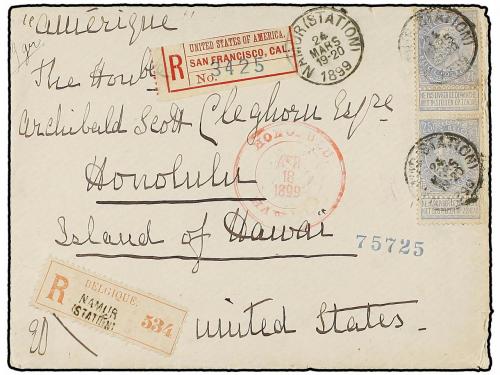 "amérique"
The Honble
Archibald Scott Cleghorn Esqre
Honolulu
Island of Hawaï"
United States.
UNITED STATES OF AMERICA.
R SAN FRANCISCO, CAL.
No. 3425
NAMUR (STATION)
24
MARS
19-20
1899
HONOLULU
APR
18
1899
75725
BELGIQUE.
R NAMUR
(STATION) 534